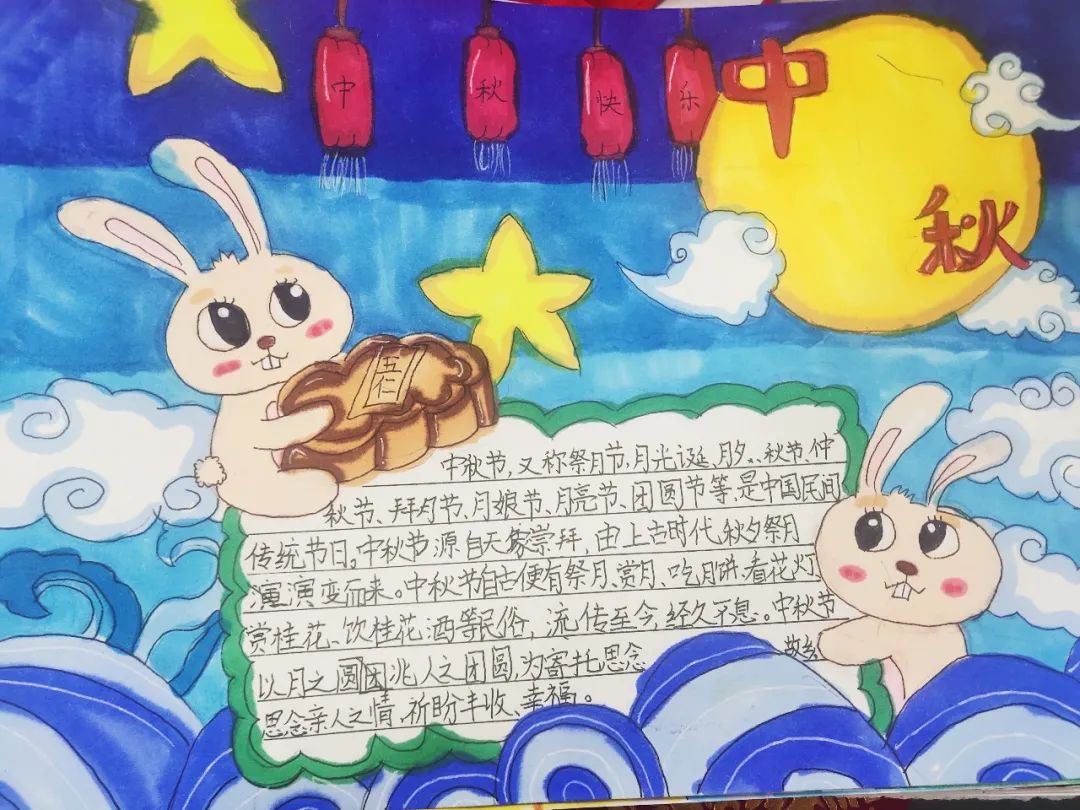 中 秋 快 乐
中
秋
五仁
中秋节,又称祭月节,月光诞,月夕、秋节、仲
秋节、拜月节、月娘节、月亮节、团圆节等,是中国民间
传统节日。中秋节源自天象崇拜,由上古时代秋夕祭月
演演变而来。中秋节自古便有祭月、赏月、吃月饼、看花灯
赏桂花、饮桂花酒等民俗,流传至今,经久不息。中秋节
以月之圆团兆人之团圆,为寄托思念故乡
思念亲人之情,祈盼丰收、幸福。